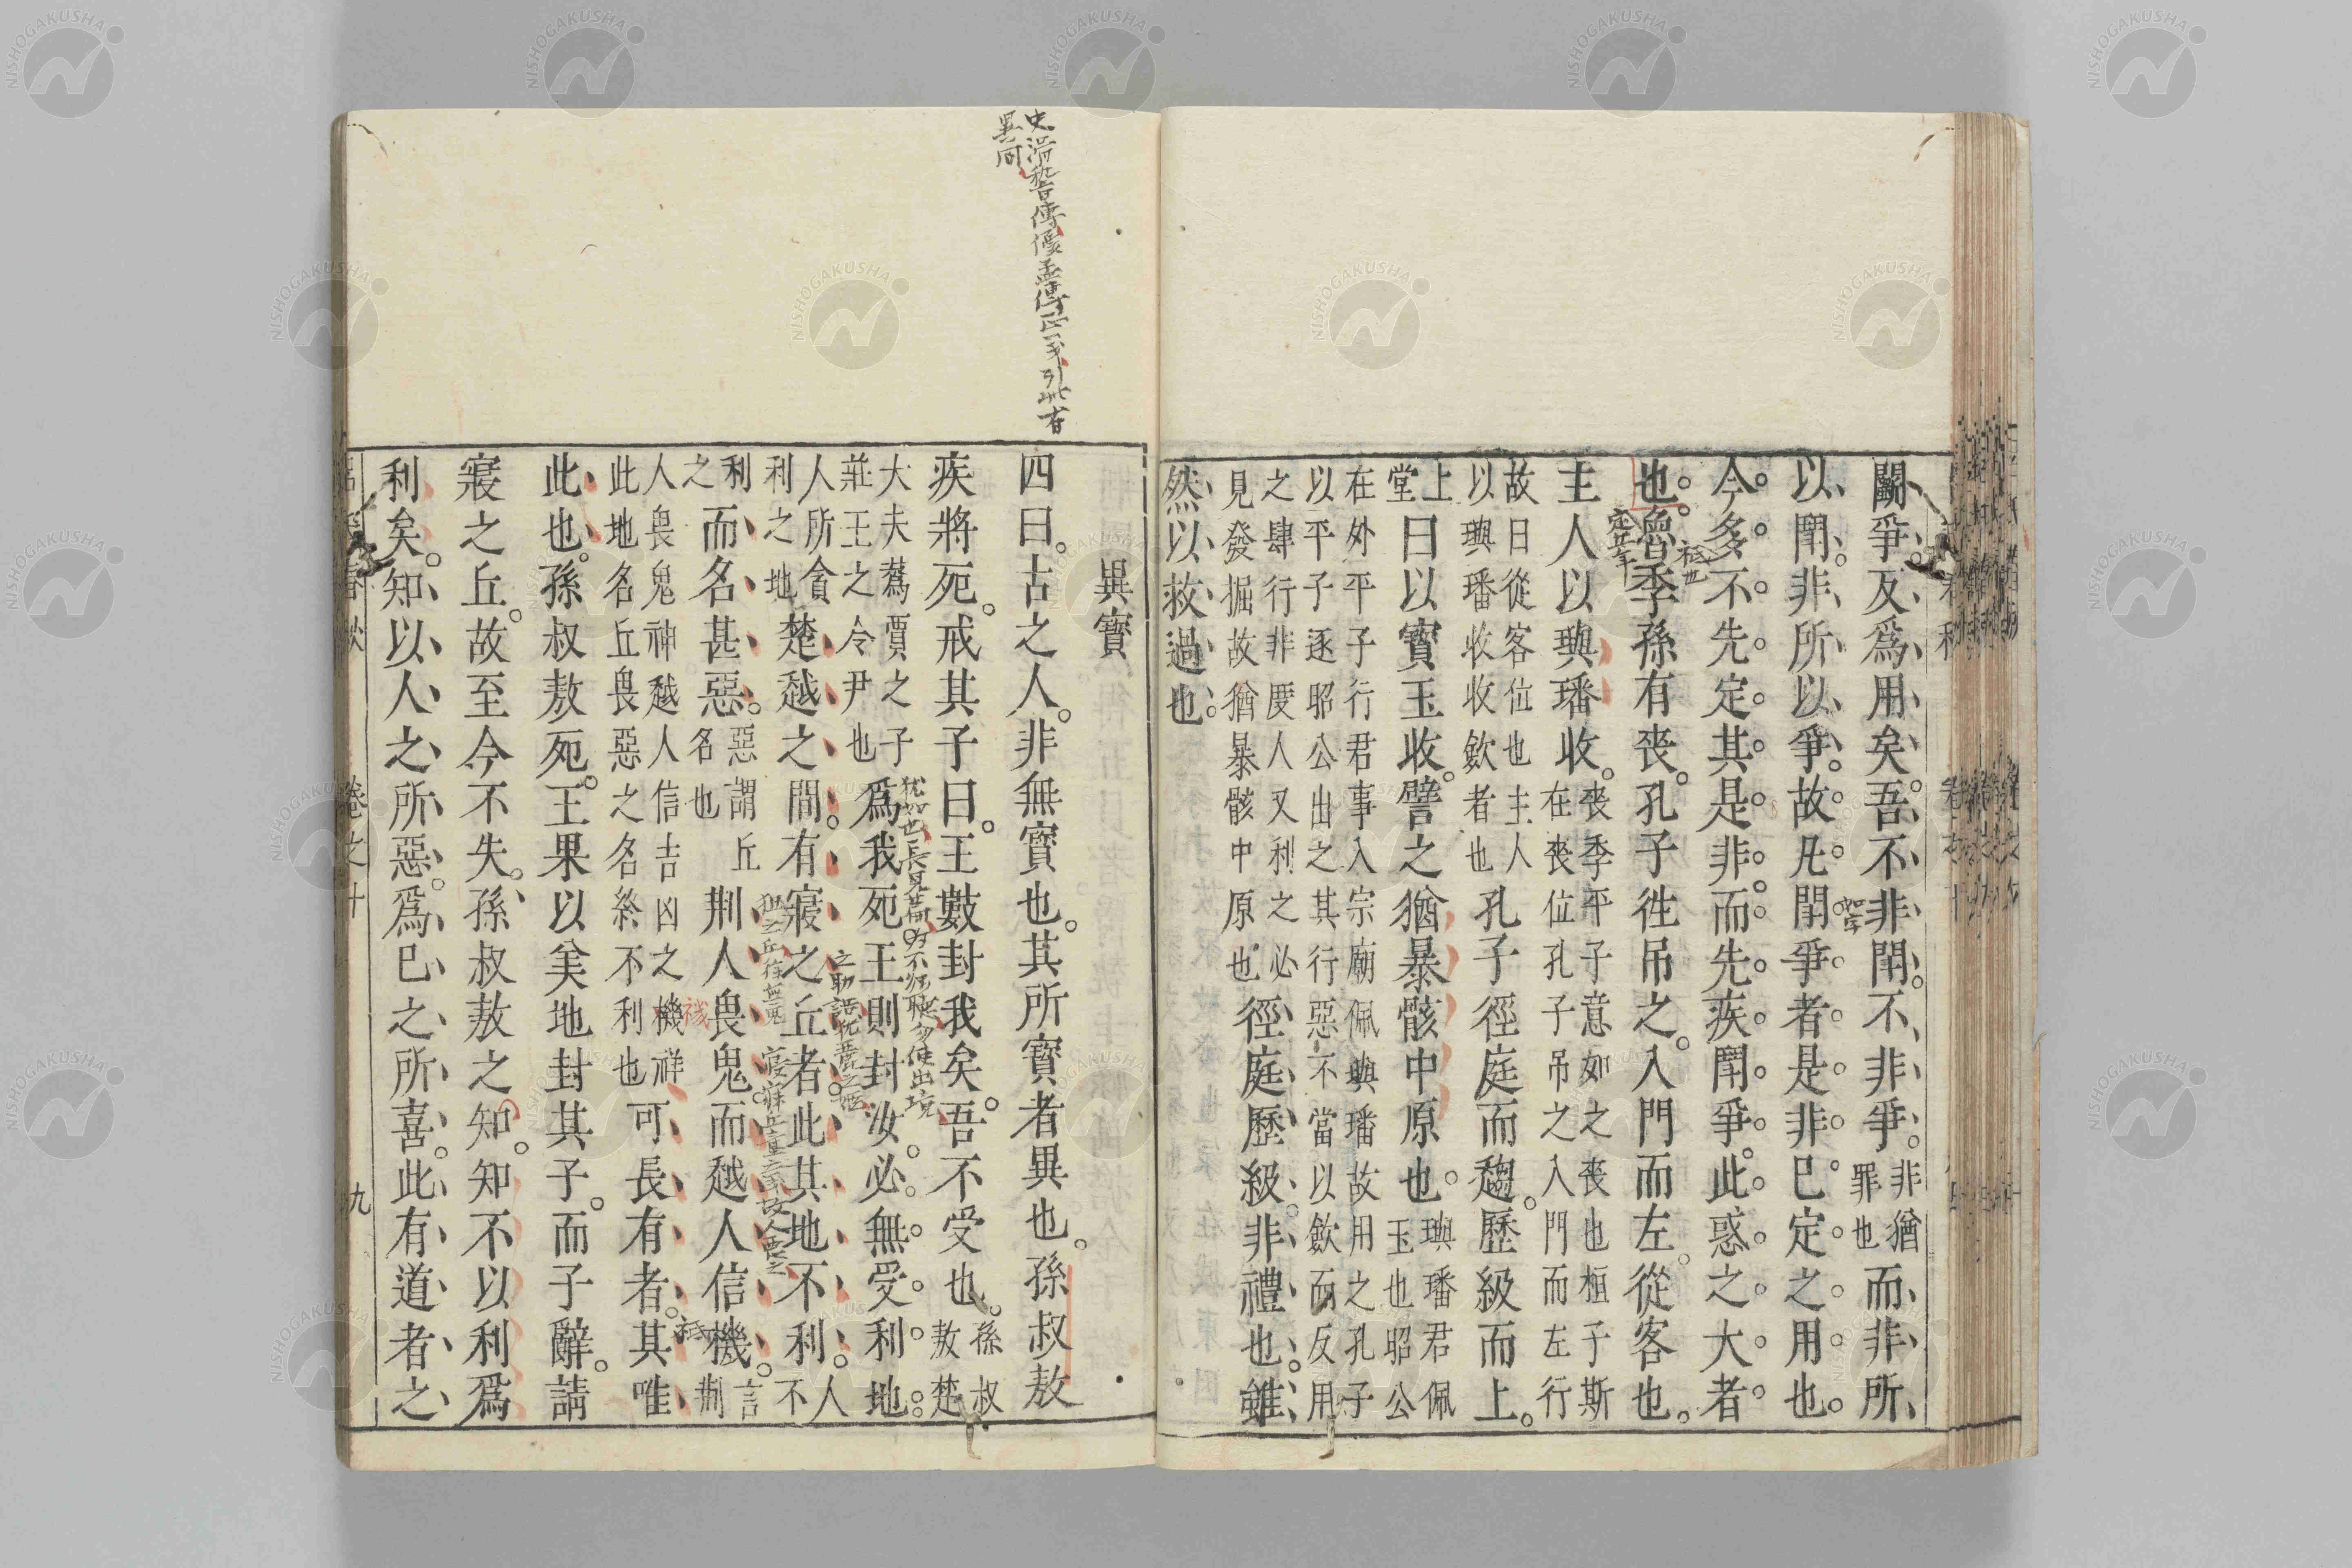 鬭爭反爲用矣。吾不非閗。不非爭。非猶罪也而非所
以閗。非所以爭。故凡閗爭者是非已定之用也。
今多不先定其是非而先疾閗爭。此惑之大者
也。魯季孫有喪。孔子徃吊之。入門而左。從客也。
主人以璵璠收。喪季平子意如之喪也桓子斯
在喪位孔子吊之入門而左行
故曰從客位也主人
以璵璠收收斂者也孔子徑庭而趨。歷級而上。
上
堂曰以寶玉收。譬之猶暴骸中原也。璵璠君佩
玉也昭公
在外平子行君事入宗廟佩璵璠故用之孔子
以平子逐昭公出之其行惡不當以斂而反用
之肆行非度人又利之必
見發掘故猶暴骸中原也徑庭歷級。非禮也。雖
然以救過也。
如字
定五年
祇也
史滑稽傳優孟傳正義引此有
異同
異寶
四曰。古之人。非無寶也。其所寶者異也。孫叔敖
疾將死。戒其子曰。王數封我矣。吾不受也。孫叔
敖楚
大夫蔿賈之子
莊王之令尹也爲我死王則封汝。必無受利地。人不
人所貪
利之地楚越之間。有寢之丘者。此其地不利。言
荆
利
之而名甚惡。惡謂丘
名也荆人畏鬼而越人信機。
人畏鬼神越人信吉凶之機祥
此地名丘畏惡之名終不利也可長有者。其唯
此也。孫叔敖死。王果以美地封其子。而子辭。請
寢之丘。故至今不失。孫叔敖之知。知不以利爲
利矣。知以人之所惡。爲已之所喜。此有道者之
卷之十
九